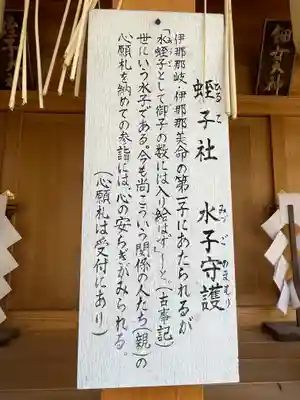 蛭子社　水子守護
ひるこ　みずごのまもり
伊那那岐・伊那那美命の第一子にあたられるが
「水蛭子として御子の数には入り給はず」と。(古事記)
世にいう水子である。今も尚こういう関係の人たち(親)の
心願札を納めての参詣には、心の安らぎがみられる。
(心願札は受付にあり)